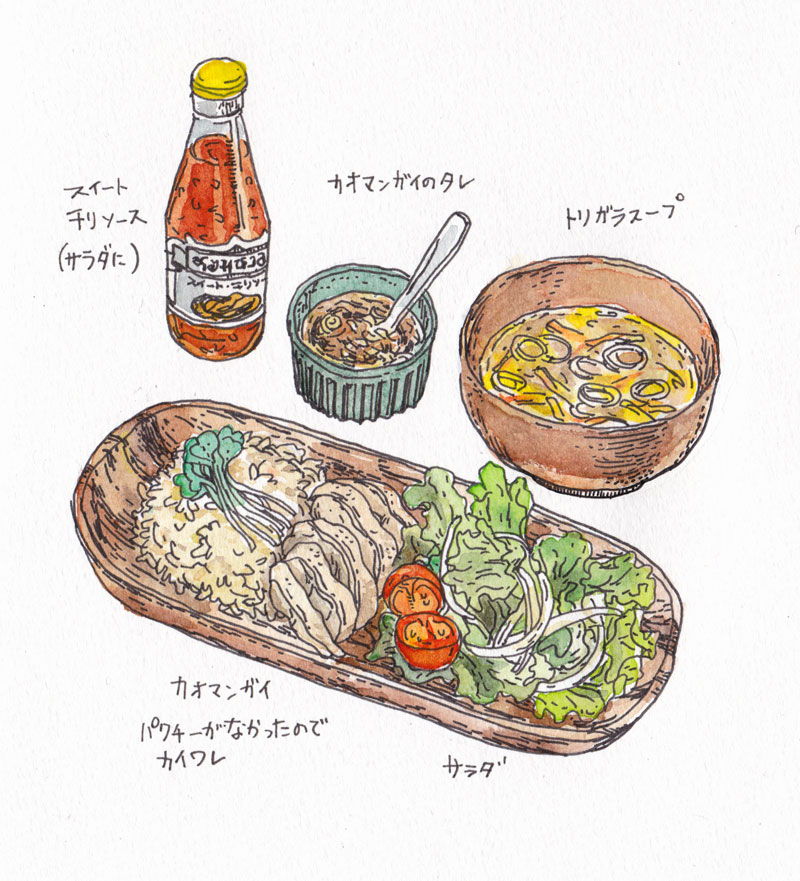 スイート
チリソース
(サラダに)
スイート・チリソー
カオマンガイのタレ
トリガラスープ
カオマンガイ
パクチーがなかったので
カイワレ
サラダ